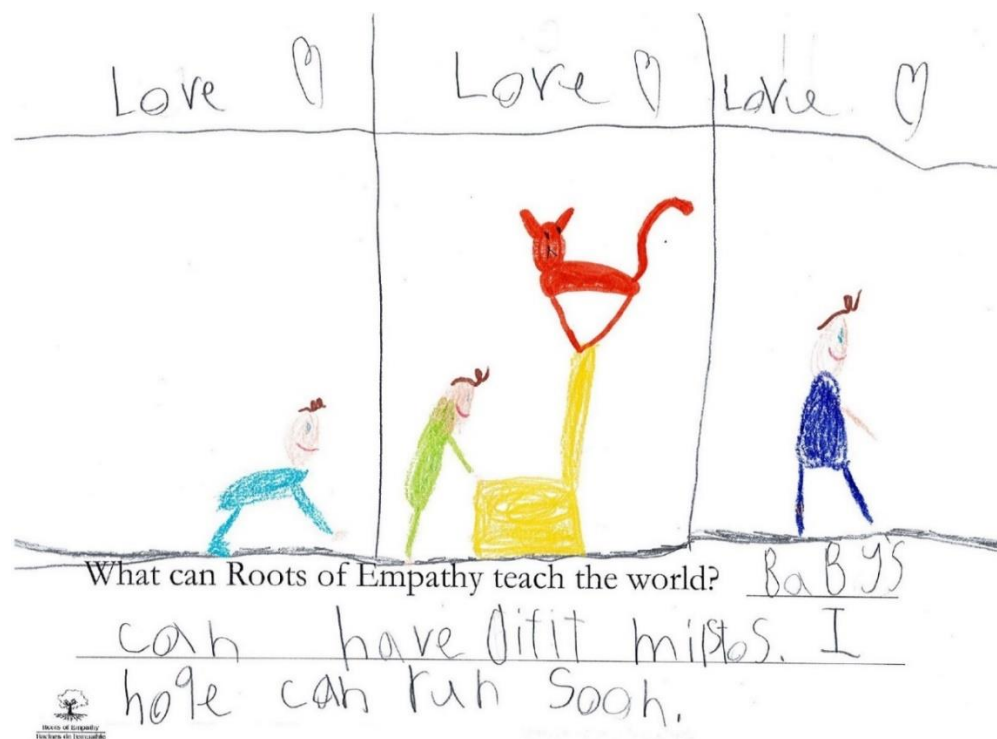 Love Love Love
What can Roots of Empathy teach the world? BaBys
can have Difit milstos. I
hope can run Soon.
Roots of Empathy
Racines de l'empathie